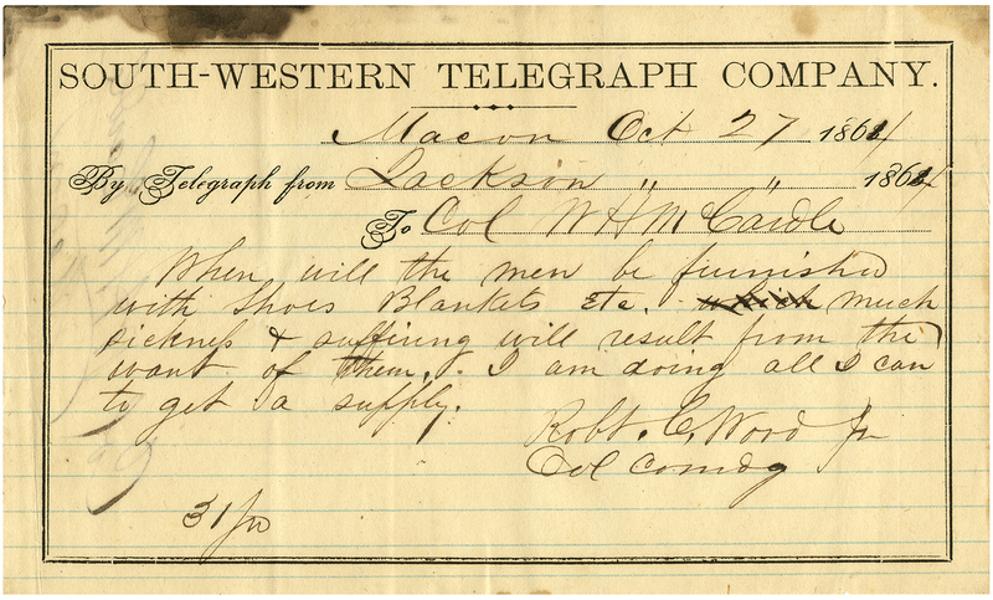 SOUTH-WESTERN TELEGRAPH COMPANY.
Macon Oct 27 1864
By Telegraph from Jackson " " 1864
To Col W H McCardle
When will the men be furnished
with shoes Blankets etc. which much
sickness & suffering will result from the
want of them. I am doing all I can
to get a supply.
Robt. C. Wood Jr
Col Comdg